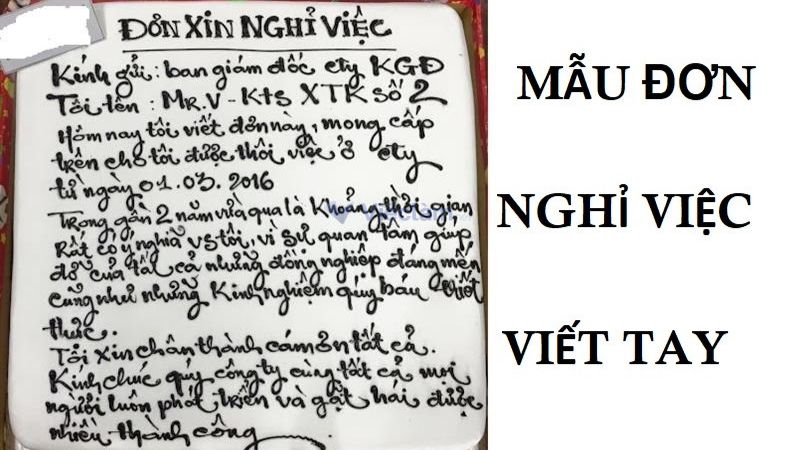 ĐƠN XIN NGHỈ VIỆC
Kính gửi: ban giám đốc cty KGD
Tôi tên: MR.V - Kts XTK số 2
Hôm nay tôi viết đơn này, mong cấp
trên cho tôi được thôi việc ở cty
từ ngày 01.03.2016
Trong gần 2 năm vừa qua là Khoảng thời gian
Rất có ý nghĩa vs tôi, vì sự quan tâm giúp
đỡ của tất cả những đồng nghiệp đáng mến
cũng như những Kinh nghiệm quý báu
thức.
Tôi xin chân thành cám ơn tất cả.
Kính chúc quý công ty cùng tất cả mọi
người luôn phát triển và gặt hái được
nhiều thành công
MẪU ĐƠN
NGHỈ VIỆC
VIẾT TAY